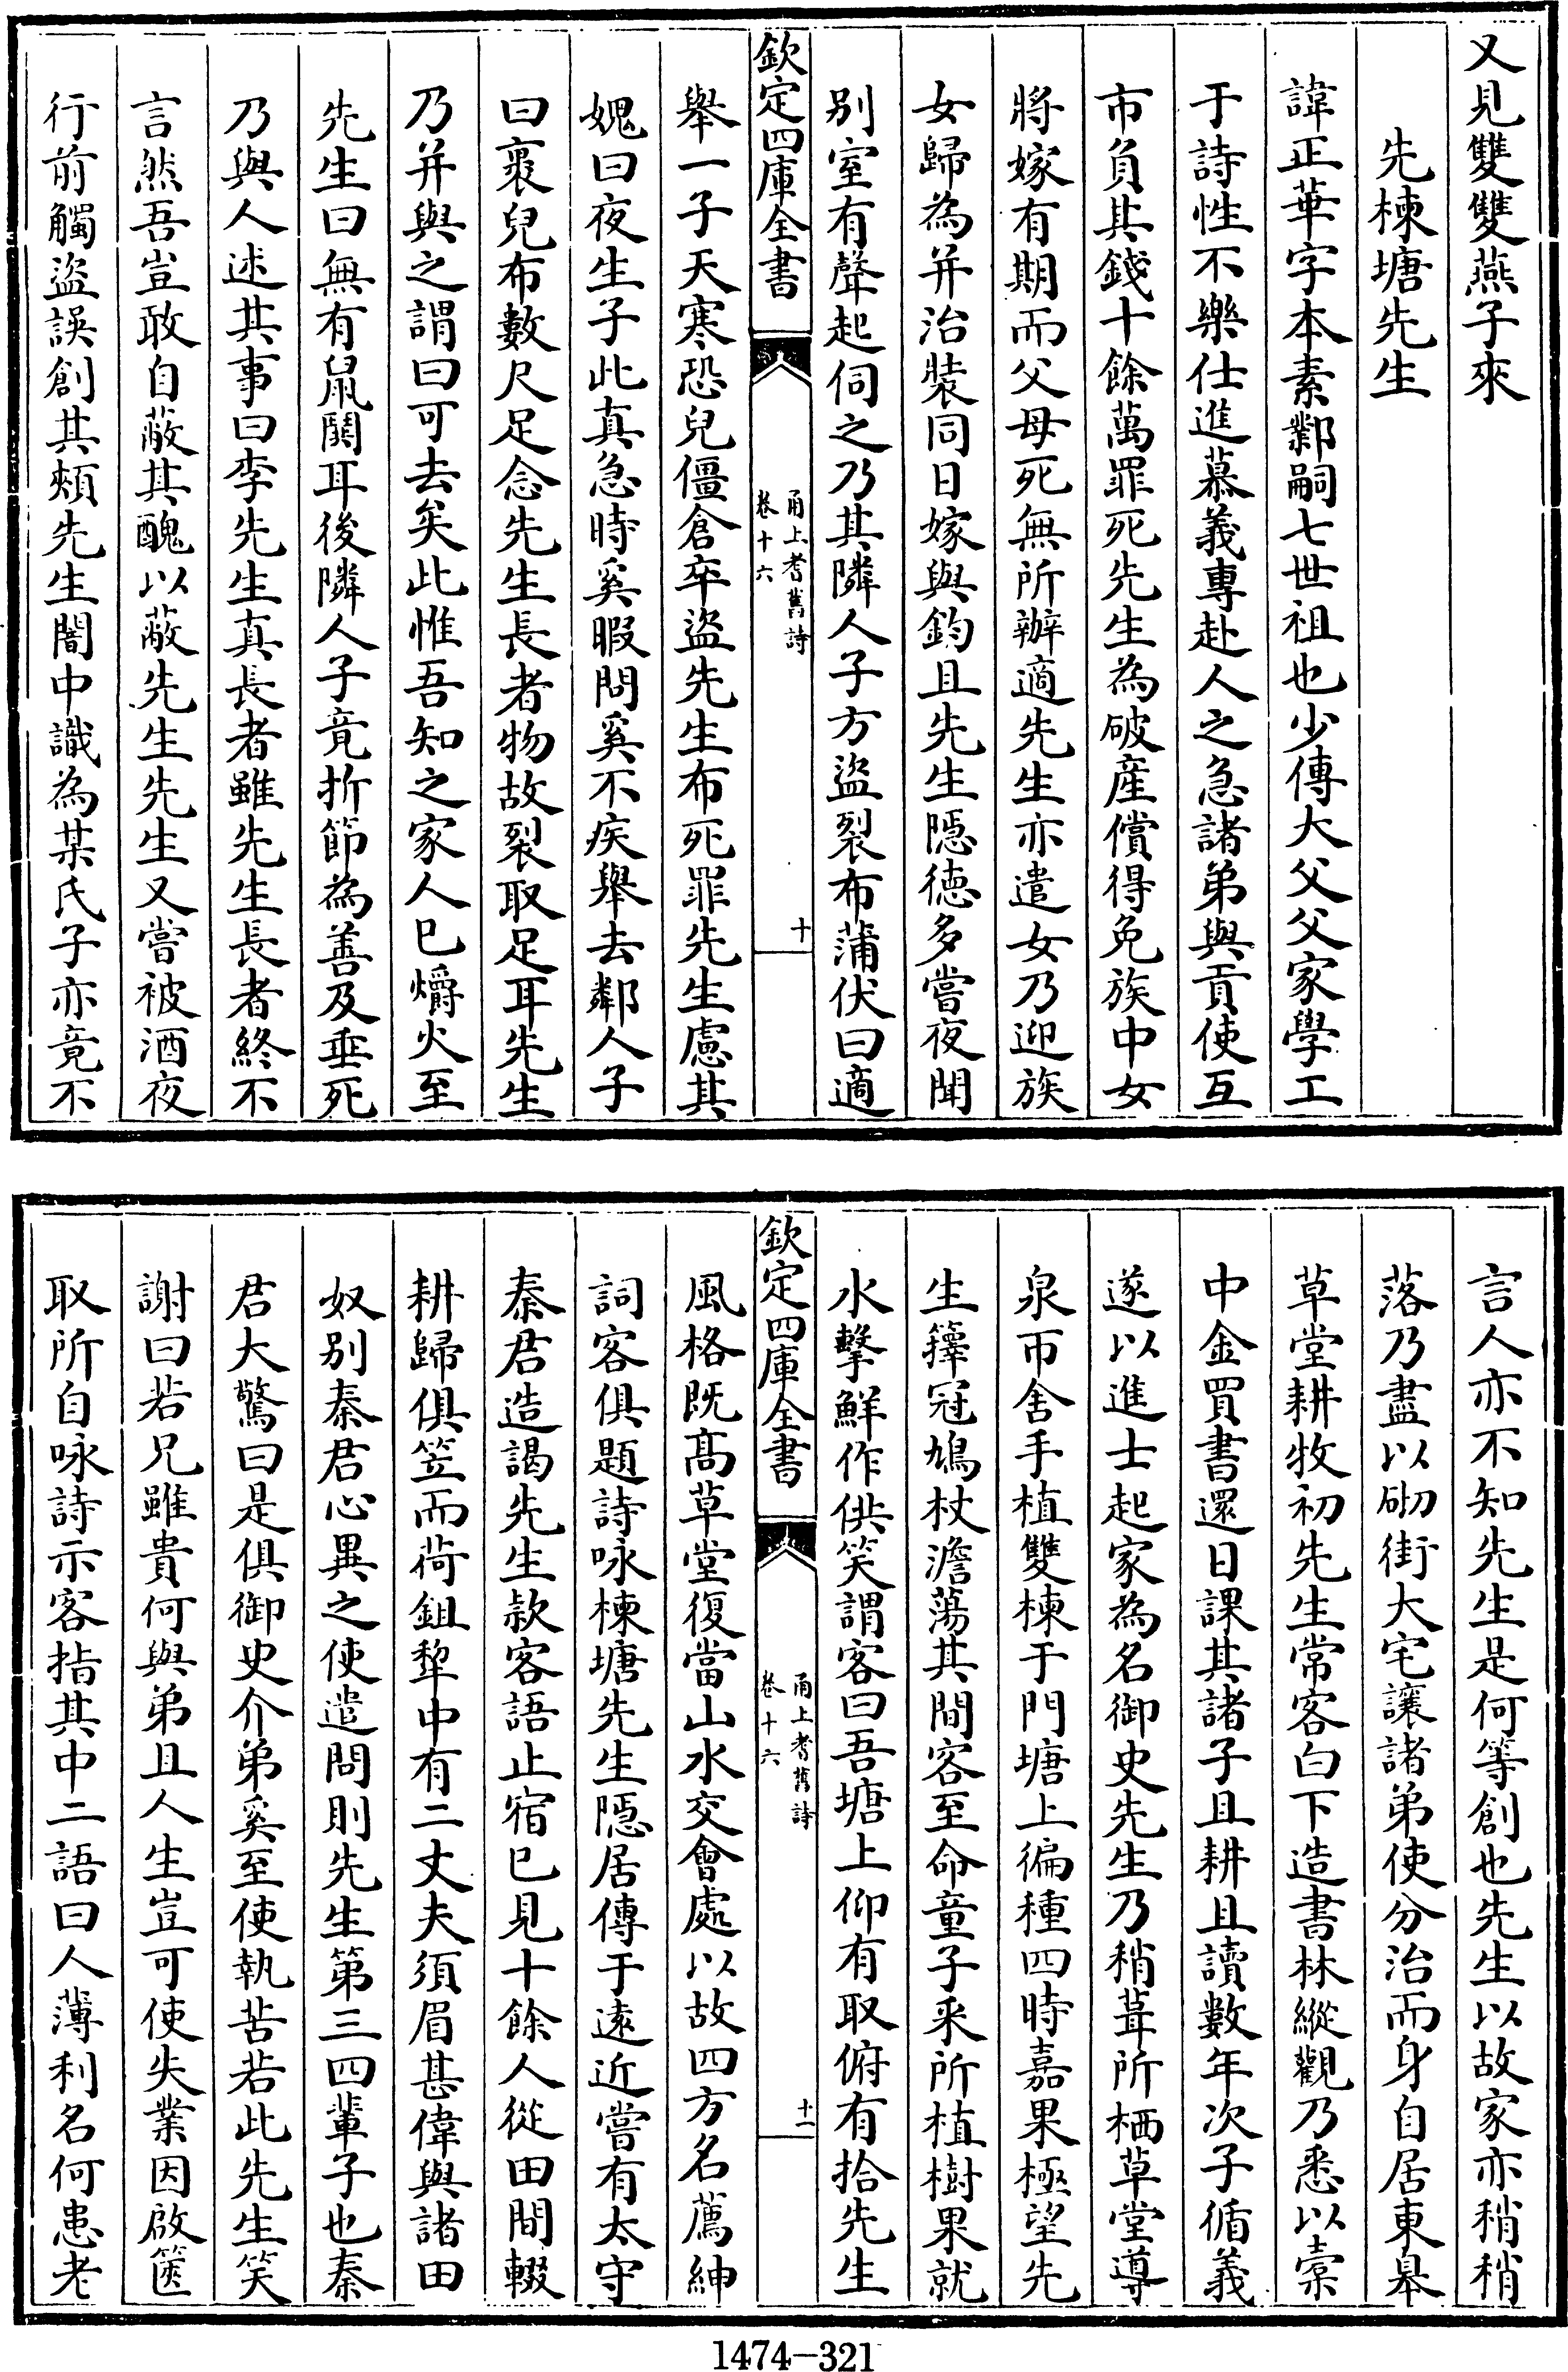 又見雙雙燕子來
先楝塘先生
諱正華字本素鄴嗣七世祖也少傳大父父家學工
于詩性不樂仕進慕義專赴人之急諸弟與貢使互
市負其錢十餘萬罪死先生為破産償得免族中女
將嫁有期而父母死無所辦適先生亦遣女乃迎族
女歸為并治裝同日嫁與鈞且先生隱德多嘗夜聞
别室有聲起伺之乃其隣人子方盜裂布蒲伏曰適
欽定四庫全書
甬上耆舊詩
卷十六
十
舉一子天寒恐兒僵倉卒盜先生布死罪先生慮其
媿曰夜生子此真急時奚暇問奚不疾舉去鄰人子
曰裹兒布數尺足念先生長者物故裂取足耳先生
乃并與之謂曰可去矣此惟吾知之家人已爝火至
先生曰無有鼠鬬耳後隣人子竟折節為善及垂死
乃與人述其事曰李先生真長者雖先生長者終不
言然吾豈敢自蔽其醜以蔽先生先生又嘗被酒夜
行前觸盜誤創其頰先生闇中識為某氏子亦竟不
言人亦不知先生是何等創也先生以故家亦稍稍
落乃盡以砌街大宅讓諸弟使分治而身自居東臯
草堂耕牧初先生常客白下造書林縱觀乃悉以橐
中金買書還日課其諸子且耕且讀數年次子循義
遂以進士起家為名御史先生乃稍葺所栖草堂導
泉帀舍手植雙楝于門塘上徧種四時嘉果極望先
生籜冠鳩杖澹蕩其間客至命童子采所植樹果就
水擊鮮作供笑謂客曰吾塘上仰有取俯有拾先生
欽定四庫全書
甬上耆舊詩
卷十六
十一
風格既髙草堂復當山水交會處以故四方名薦紳
詞客俱題詩咏楝塘先生隱居傳于遠近嘗有太守
秦君造謁先生欵客語止宿已見十餘人從田間輟
耕歸俱笠而荷鉏犂中有二丈夫須眉甚偉與諸田
奴别秦君心異之使遣問則先生第三四輩子也秦
君大驚曰是俱御史介弟奚至使執苦若此先生笑
謝曰若兄雖貴何與弟且人生豈可使失業因啟篋
取所自咏詩示客指其中二語曰人薄利名何患老
1474-321